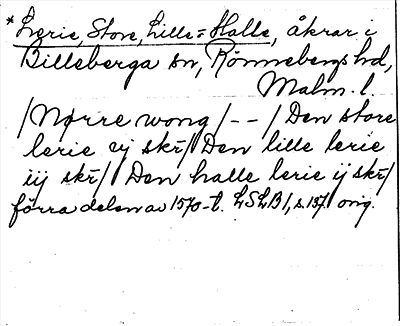 *Lerie, Store, Lille = Halle, åkrar i
Billeberga sn, Rönnebergs hd,
Malm. l.
/Nørre wong/--/Den store
lerie vj skr̄/ Den lille lerie
iij skr̄/ Den halle lerie ij skr̄/
förra delen av 1570-t. LSLB1, s. 137. orig.